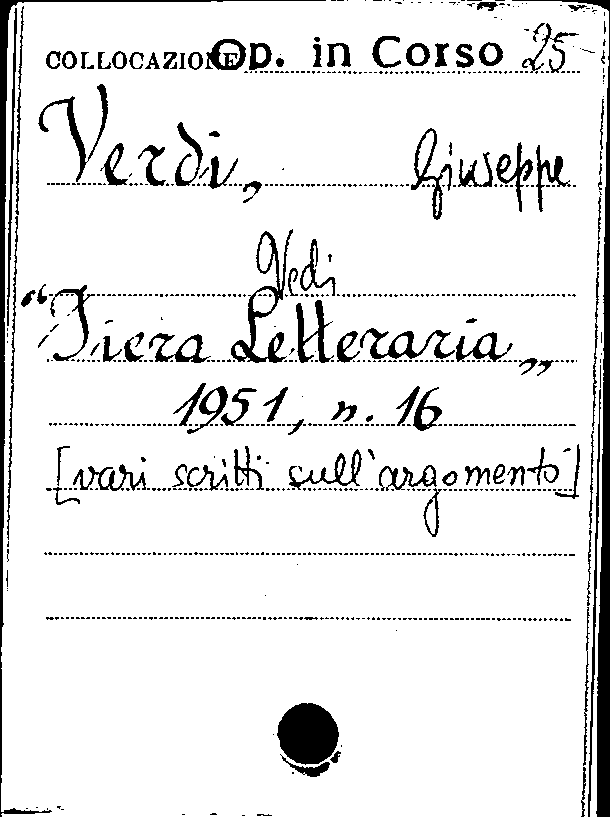 COLLOCAZIONE Op. in Corso 25
Verdi, Giuseppe
Vedi
“Fiera Letteraria„
1951, n. 16
[vari scritti sull'argomento]